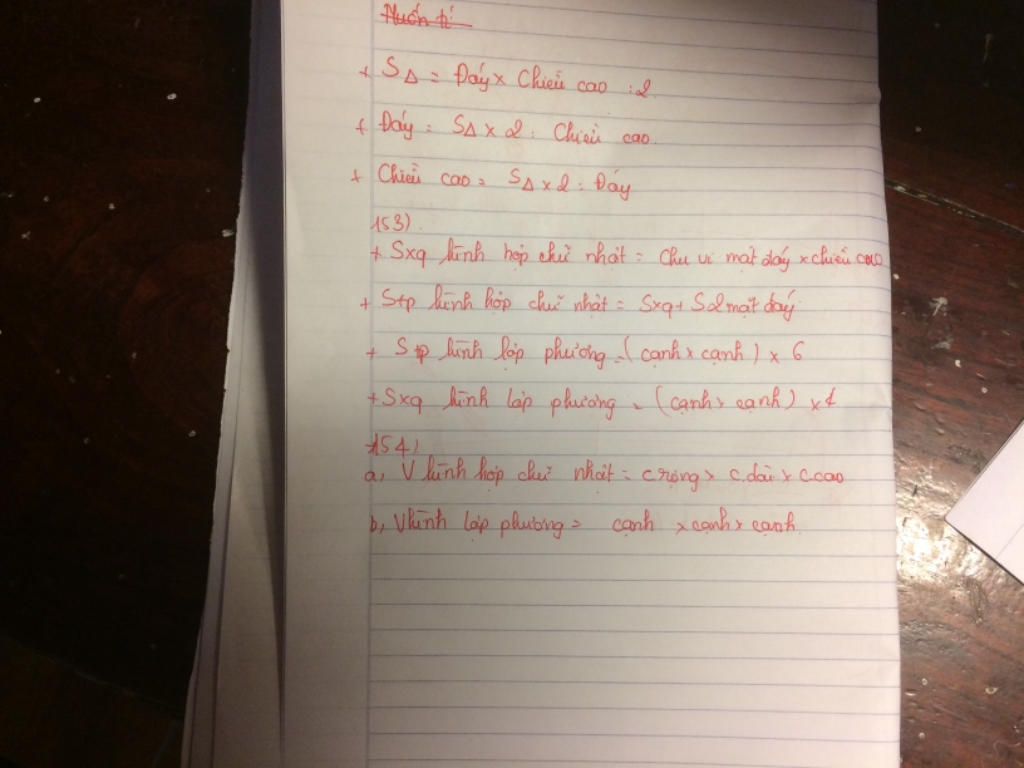 Muốn tí
+ SΔ = Đáy x Chiều cao : 2
+ Đáy = SΔ x 2 : Chiều cao
+ Chiều cao = SΔ x 2 : Đáy
153)
+ Sxq hình hộp chữ nhật = Chu vi mặt đáy x chiều cao
+ Stp hình hộp chữ nhật = Sxq + S2 mặt đáy
+ Stp hình lập phương = (cạnh x cạnh) x 6
+ Sxq hình lập phương = (cạnh x cạnh) x 4
154)
a, V hình hộp chữ nhật = c.rộng x c.dài x c.cao
b, V hình lập phương = cạnh x cạnh x cạnh.